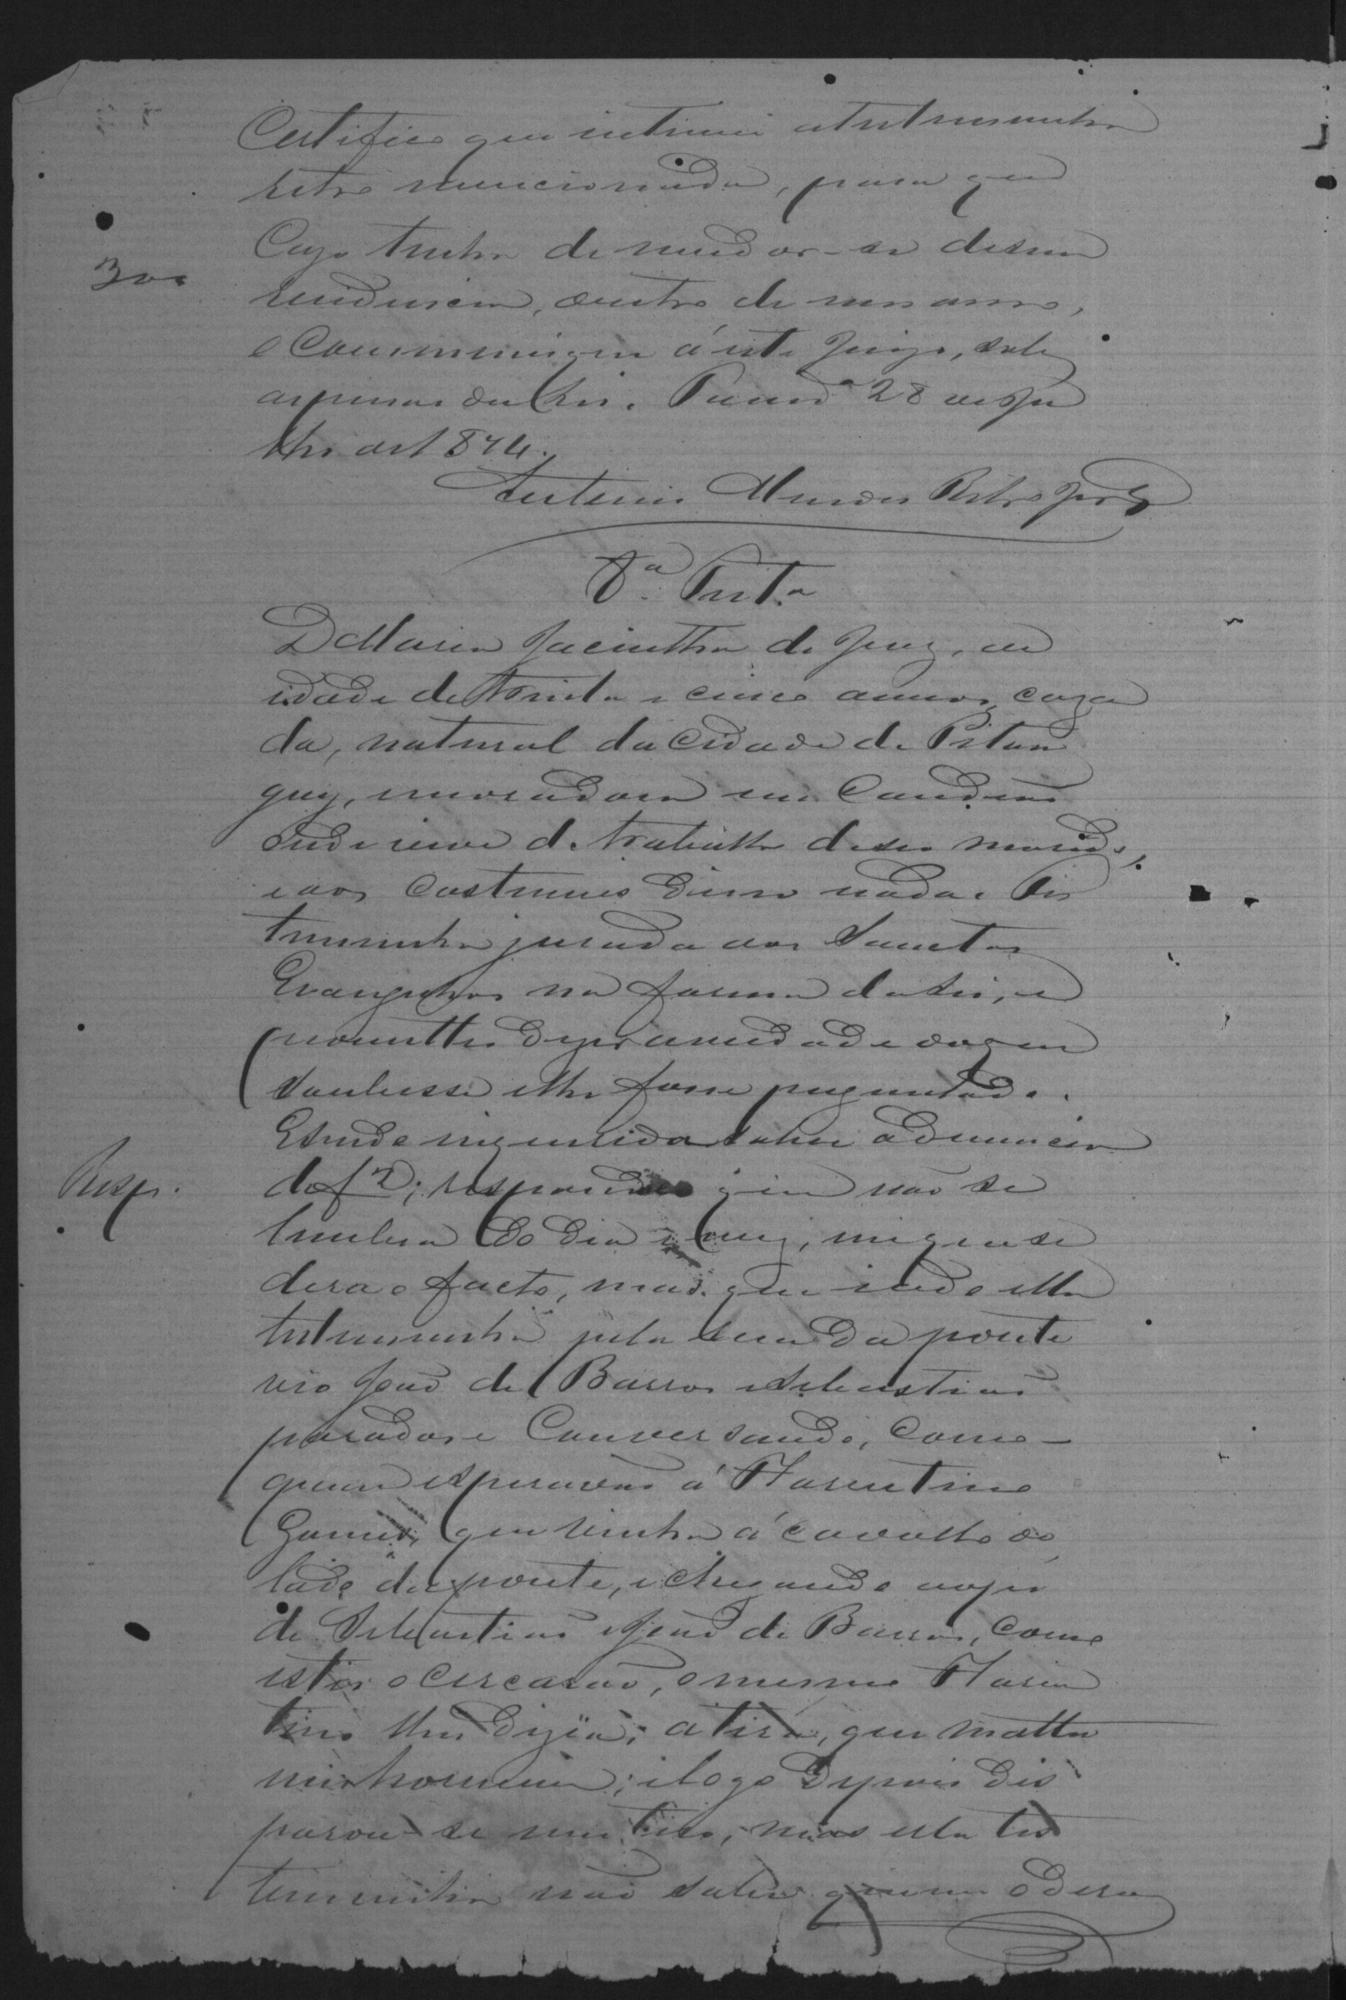 Certifico que intimei a testemunha
retro mencionada, para que
Cazo tenha de mudar-se desua
residencia, dentro de um anno,
300
e Communique á este Juizo, sob
as penas da Lei. 28 de Ju
lho de 1874.
Antonio Mendes Brito Jor
8ª Test.ª
D Maria Jacinttha de Jesus, de
idade de trinta e cinco annos, caza
da, natural da Cidade de Pitan
guy, moradora no
onde vive de trabalho de seo marido,
e aos Costumes disse nada. Tes
temunha jurada aos Santos
Evangelhos na forma da Lei, e
prometteo dizer a verdade do que
soubesse e lhe fosse perguntado.
E sendo inquirida sobre a denuncia
Resp.
de f 2; respondeo que não se
lembra do dia e mez, em que se
dera o facto, mas que indo ella
testemunha pela da ponte
vio João de Barros e Sebastião
parados e Conversando, como
quem esperavão á Florentino
Gomes, que vinha á cavallo do
lado da ponte, e chegando ao pé
de Sebastião e João de Barros, como
estes o cercarão, o mesmo Floren
tino lhes dizia; atira, que matta
um homem; e logo depois dis
parou-se um tiro, mas ella tes
temunha não sabe quem o dera